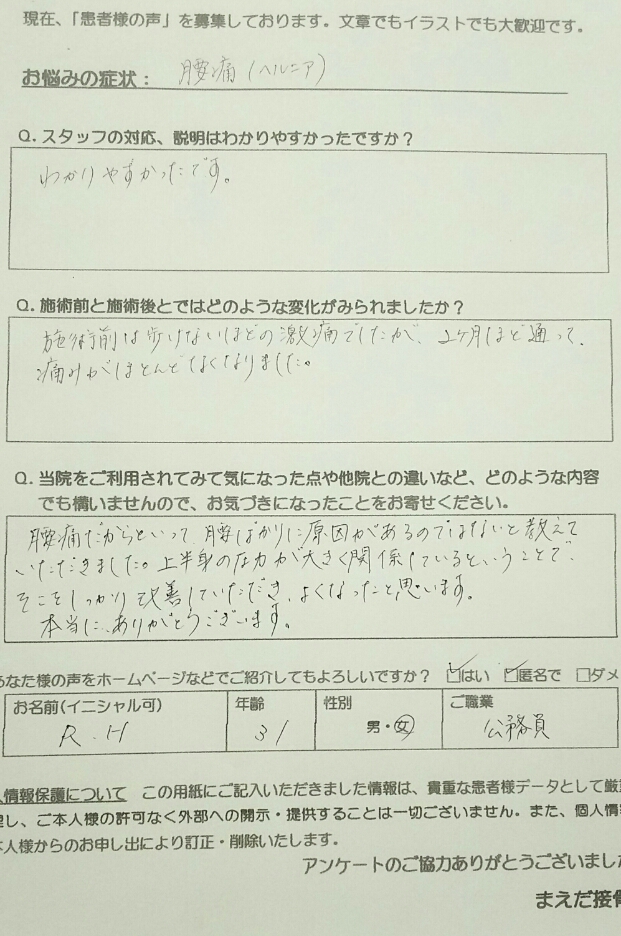 現在、「患者様の声」を募集しております。文章でもイラストでも大歓迎です。
お悩みの症状： 腰痛（ヘルニア）
Q. スタッフの対応、説明はわかりやすかったですか？
わかりやすかったです。
Q. 施術前と施術後とではどのような変化がみられましたか？
施術前は歩けないほどの激痛でしたが、2ヶ月ほど通って、
痛みがほとんどなくなりました。
Q. 当院をご利用されてみて気になった点や他院との違いなど、どのような内容
でも構いませんので、お気づきになったことをお寄せください。
腰痛だからといって、腰ばかりに原因があるのではないと教えて
いただきました。上半身の左力が大きく関係しているということで
そこをしっかり改善していただき、よくなったと思います。
本当に、ありがとうございます。
あなた様の声をホームページなどでご紹介してもよろしいですか？ ☑はい ☑匿名で □ダメ
お名前（イニシャル可） 年齢 性別 ご職業
R.H 31 男・女 公務員
人情報保護について この用紙にご記入いただきました情報は、貴重な患者様データとして厳
理し、ご本人様の許可なく外部への開示・提供することは一切ございません。また、個人情
本人様からのお申し出により訂正・削除いたします。
アンケートのご協力ありがとうございまし
まえだ接骨